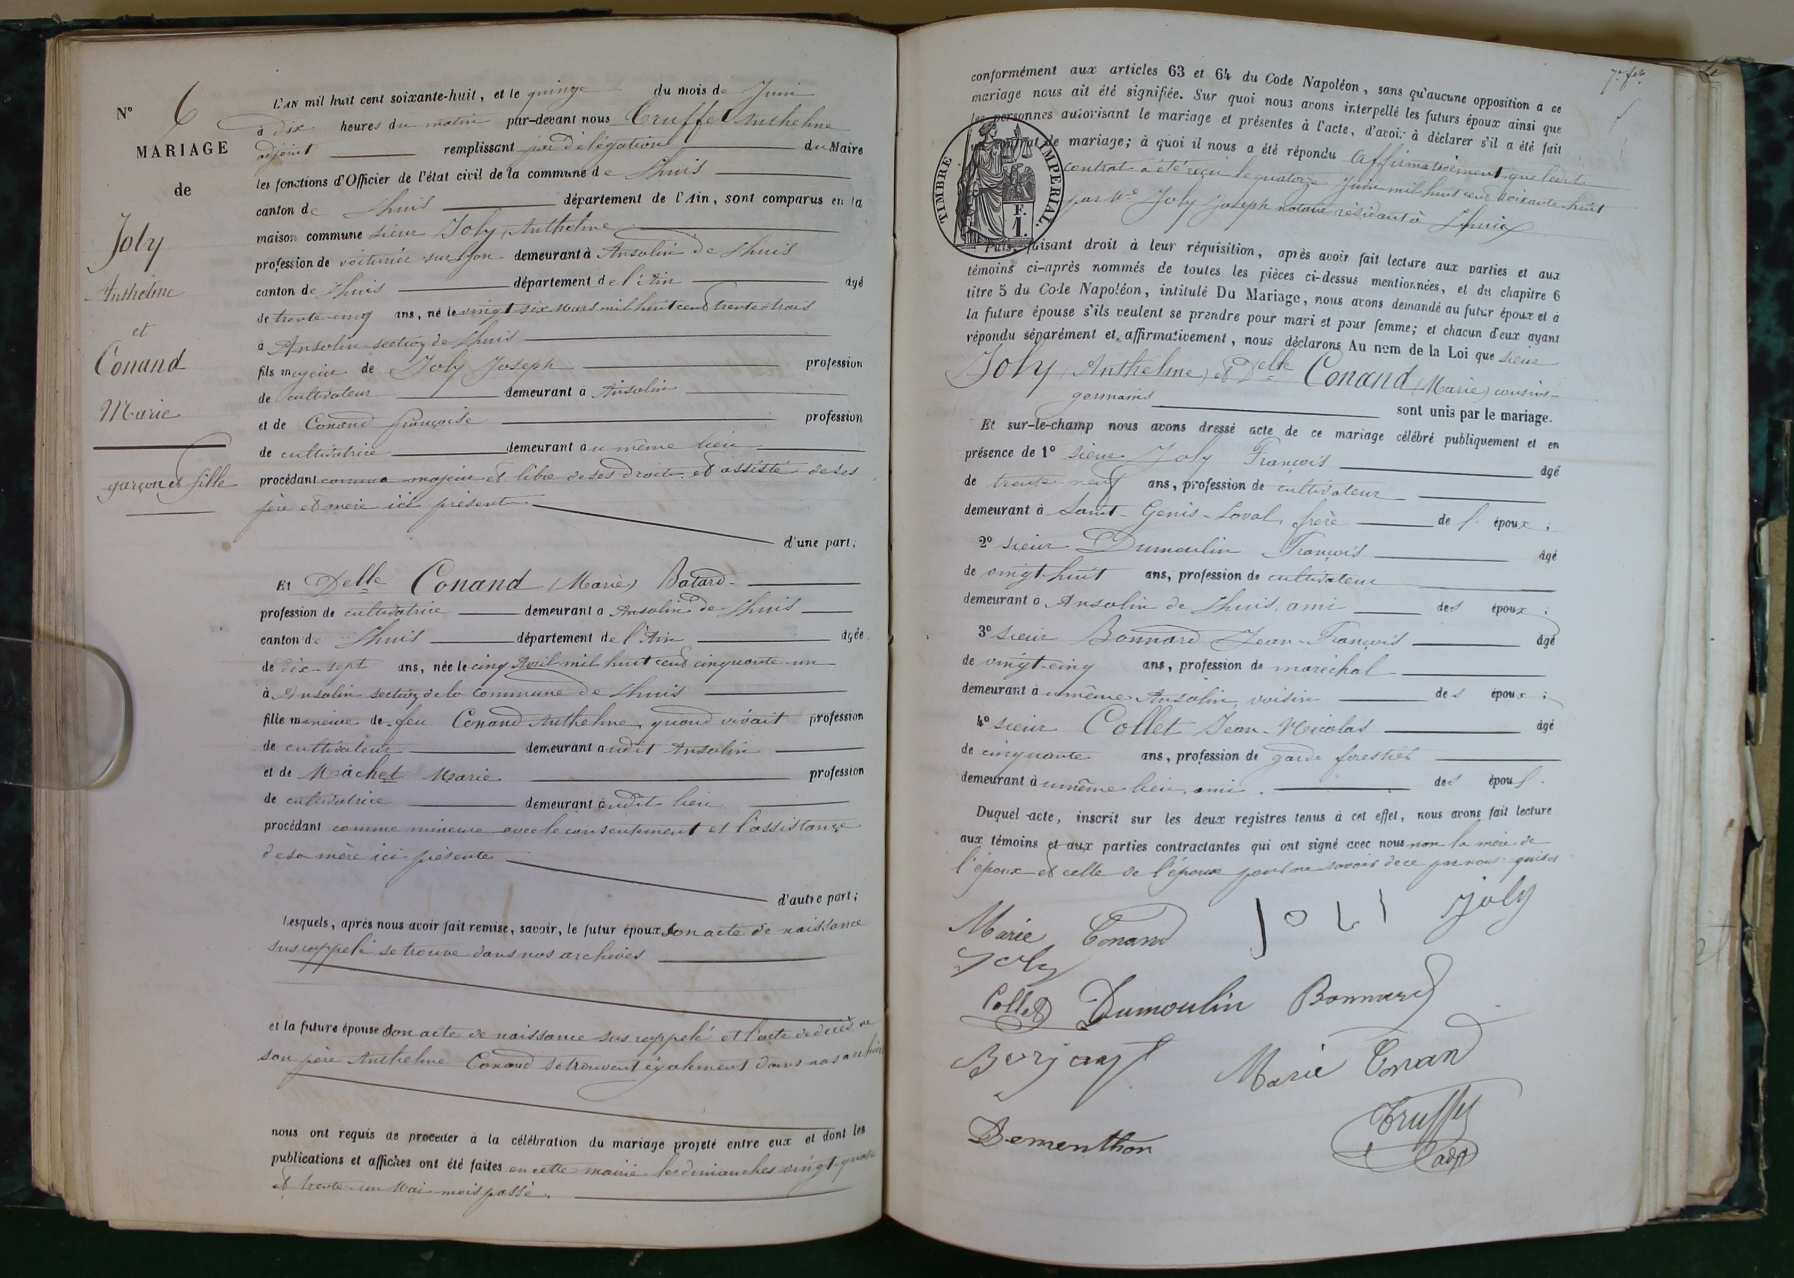 N° 6
MARIAGE
de
Joly
Anthelme
et
Conand
Marie
garçon et fille
L'AN mil huit cent soixante-huit, et le quinze du mois de Juin
à dix heures du matin par-devant nous Truffet Anthelme
adjoint remplissant par délégation du Maire
les fonctions d'Officier de l'état civil de la commune de Lhuis
canton de Lhuis département de l'Ain, sont comparus en la
maison commune sieur Joly Anthelme
profession de voiturier sur demeurant à Ansolin de Lhuis
canton de Lhuis département de l'Ain âgé
de trente-cinq ans, né le vingt six mars mil huit cent trente-trois
à Ansolin section de Lhuis
fils majeur de Joly Joseph profession
de cultivateur demeurant à Ansolin
et de Conand françoise profession
de cultivatrice demeurant au même lieu
procédant comme majeur et libre de ses droits et assisté de ses
père et mère ici présents
d'une part;
Et Delle Conand (Marie) Batard
profession de cultivatrice demeurant à Ansolin de Lhuis
canton de Lhuis département de l'Ain âgée
de dix-sept ans, née le cinq Avril mil huit cent cinquante-un
à Ansolin section de la commune de Lhuis
fille mineure de feu Conand Anthelme, quand vivait profession
de cultivateur demeurant audit Ansolin
et de Machet Marie profession
de cultivatrice demeurant audit lieu
procédant comme mineure avec le consentement et l'assistance
de sa mère ici présente
d'autre part;
Lesquels, après nous avoir fait remise, savoir, le futur époux son acte de naissance
susrappelé se trouve dans nos archives
et la future épouse son acte de naissance susrappelé et l'acte de décès de
son père Anthelme Conand se trouvent également dans nos archives
nous ont requis de procéder à la célébration du mariage projeté entre eux et dont les
publications et affiches ont été faites en cette mairie les dimanches vingt-quatre
et trente-un Mai mois passé.
conformément aux articles 63 et 64 du Code Napoléon, sans qu'aucune opposition à ce
mariage nous ait été signifiée. Sur quoi nous avons interpellé les futurs époux ainsi que
les personnes autorisant le mariage et présentes à l'acte, d'avoir à déclarer s'il a été fait
contrat de mariage; à quoi il nous a été répondu affirmativement que leur
contrat a été reçu le quatorze Juin mil huit cent soixante-huit
par Me Joly Joseph notaire résidant à Lhuis
TIMBRE IMPERIAL
F.
1.
Puis, faisant droit à leur réquisition, après avoir fait lecture aux parties et aux
témoins ci-après nommés de toutes les pièces ci-dessus mentionnées, et du chapitre 6
titre 5 du Code Napoléon, intitulé Du Mariage, nous avons demandé au futur époux et à
la future épouse s'ils veulent se prendre pour mari et pour femme; et chacun d'eux ayant
répondu séparément et affirmativement, nous déclarons Au nom de la Loi que sieur
Joly (Anthelme) et Delle Conand (Marie) cousins-
germains sont unis par le mariage.
Et sur-le-champ nous avons dressé acte de ce mariage célébré publiquement et en
présence de 1° sieur Joly François âgé
de trente neuf ans, profession de cultivateur
demeurant à Saint-Genis-Laval, frère de l' époux;
2° sieur Dumoulin François âgé
de vingt-huit ans, profession de cultivateur
demeurant à Ansolin de Lhuis, ami des époux;
3° sieur Bonnard Jean-François âgé
de vingt-cinq ans, profession de maréchal
demeurant à u même Ansolin, voisin des époux;
4° sieur Collet Jean-Nicolas âgé
de cinquante ans, profession de garde forestier
demeurant à u même lieu, ami des époux.
Duquel acte, inscrit sur les deux registres tenus à cet effet, nous avons fait lecture
aux témoins et aux parties contractantes qui ont signé avec nous non la mère de
l'époux et celle de l'époux pour ne savoir de ce par nous requises
Marie Conand JOLI Joly
Joly
Collet Dumoulin Bonnard
Marie Conand
Dementhon
Truffet
adjt